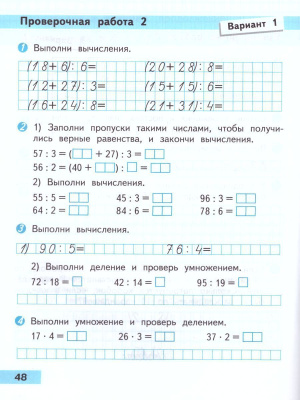 Проверочная работа 2
Вариант 1
1 Выполни вычисления.
(18+6):6= (20+28):8=
(12+27):3= (15+15):6=
(16+24):8= (21+31):4=
2 1) Заполни пропуски такими числами, чтобы получи-
лись верные равенства, и закончи вычисления.
57 : 3 = ( + 27) : 3 =
56 : 2 = (40 + ) : =
2) Выполни вычисления.
55 : 5 = 45 : 3 = 96 : 3 =
64 : 2 = 84 : 6 = 78 : 6 =
3 Выполни вычисления.
1) 90:5= 76:4=
2) Выполни деление и проверь умножением.
72 : 18 = 42 : 14 = 95 : 19 =
4 Выполни умножение и проверь делением.
17 · 4 = 26 · 3 = 37 · 2 =
48